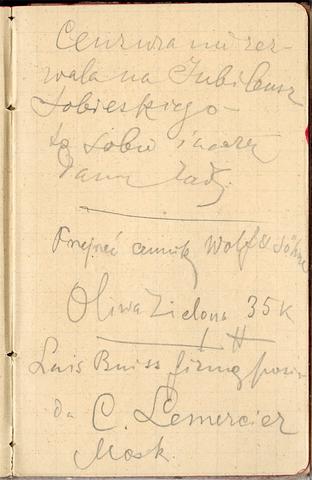 Cenzura nie zez-
wala na Jubileusz
Sobieskiego –
to sobie inaczej
damy radę.
cennik Wolff & Söhne
Oliwa Zielona 35 K
Luis Buiss firmę posia-
da C. Lemercier
Mosk.